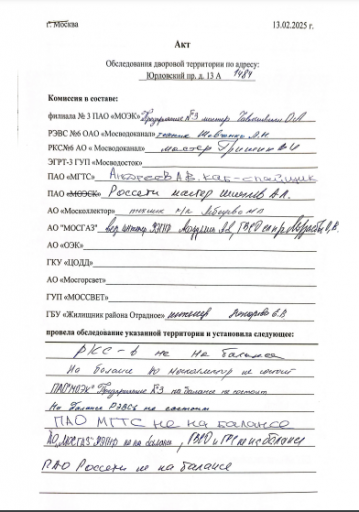 г. Москва 13.02.2025 г.
Акт
Обследования дворовой территории по адресу:
Юрловский пр, д. 13 А 1484
Комиссия в составе:
филиала № 3 ПАО «МОЭК» Предприятие №3 мастер
РЭВС №6 ОАО «Мосводоканал» техник Шевченко А.Н.
РКС№6 АО « Мосводоканал» мастер Гришенко
ЭГРТ-3 ГУП «Мосводосток»
ПАО «МГТС» Алексеев А.В. каб-спайщик
ПАО «МОЭСК» Россети мастер
АО «Москоллектор» техник
АО "МОСГАЗ"
АО «ОЭК»
ГКУ «ЦОДД»
АО «Мосгорсвет»
ГУП «МОССВЕТ»
ГБУ «Жилищник района Отрадное» инженер
провела обследование указанной территории и установила следующее:
РКС-6 не на балансе
На балансе АО Москоллектор не состоит
ПАО "МОЭК" Предприятие №3 на балансе не состоит
На балансе РЭВС6 не состоит
ПАО МГТС не на балансе
АО "МОСГАЗ" не на балансе, не на балансе
ПАО Россети не на балансе